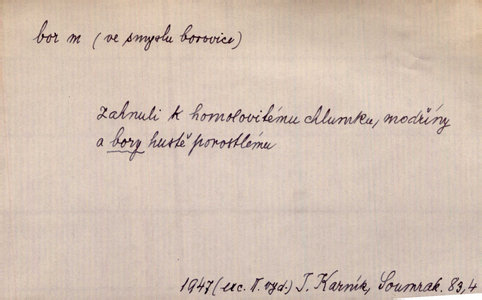 bor m (ve smyslu borovice)
zahnuli k homolovitému chlumku, modříny
a bory hustě porostlému
1947 (exc. II. vyd.) J. Karník, Soumrak. 83,4